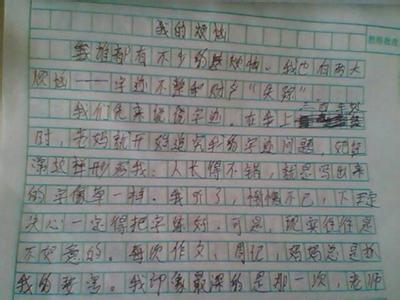 我的烦恼
我谁都有不少的烦恼。我也有两大
烦恼——字迹不整和财字"失踪"
我们先来说说字迹。在学上
时，老妈就开始追究我的字迹问题，她曾
深这样形容我：人长得不错，就怎写出来
的字像草一样。我听了，惭愧不已，下定
决心一定得把字练好。可是，现实往往是
不如意的。每次作文，周记，妈妈总是把
我的 我印像最深的是那一次，老师